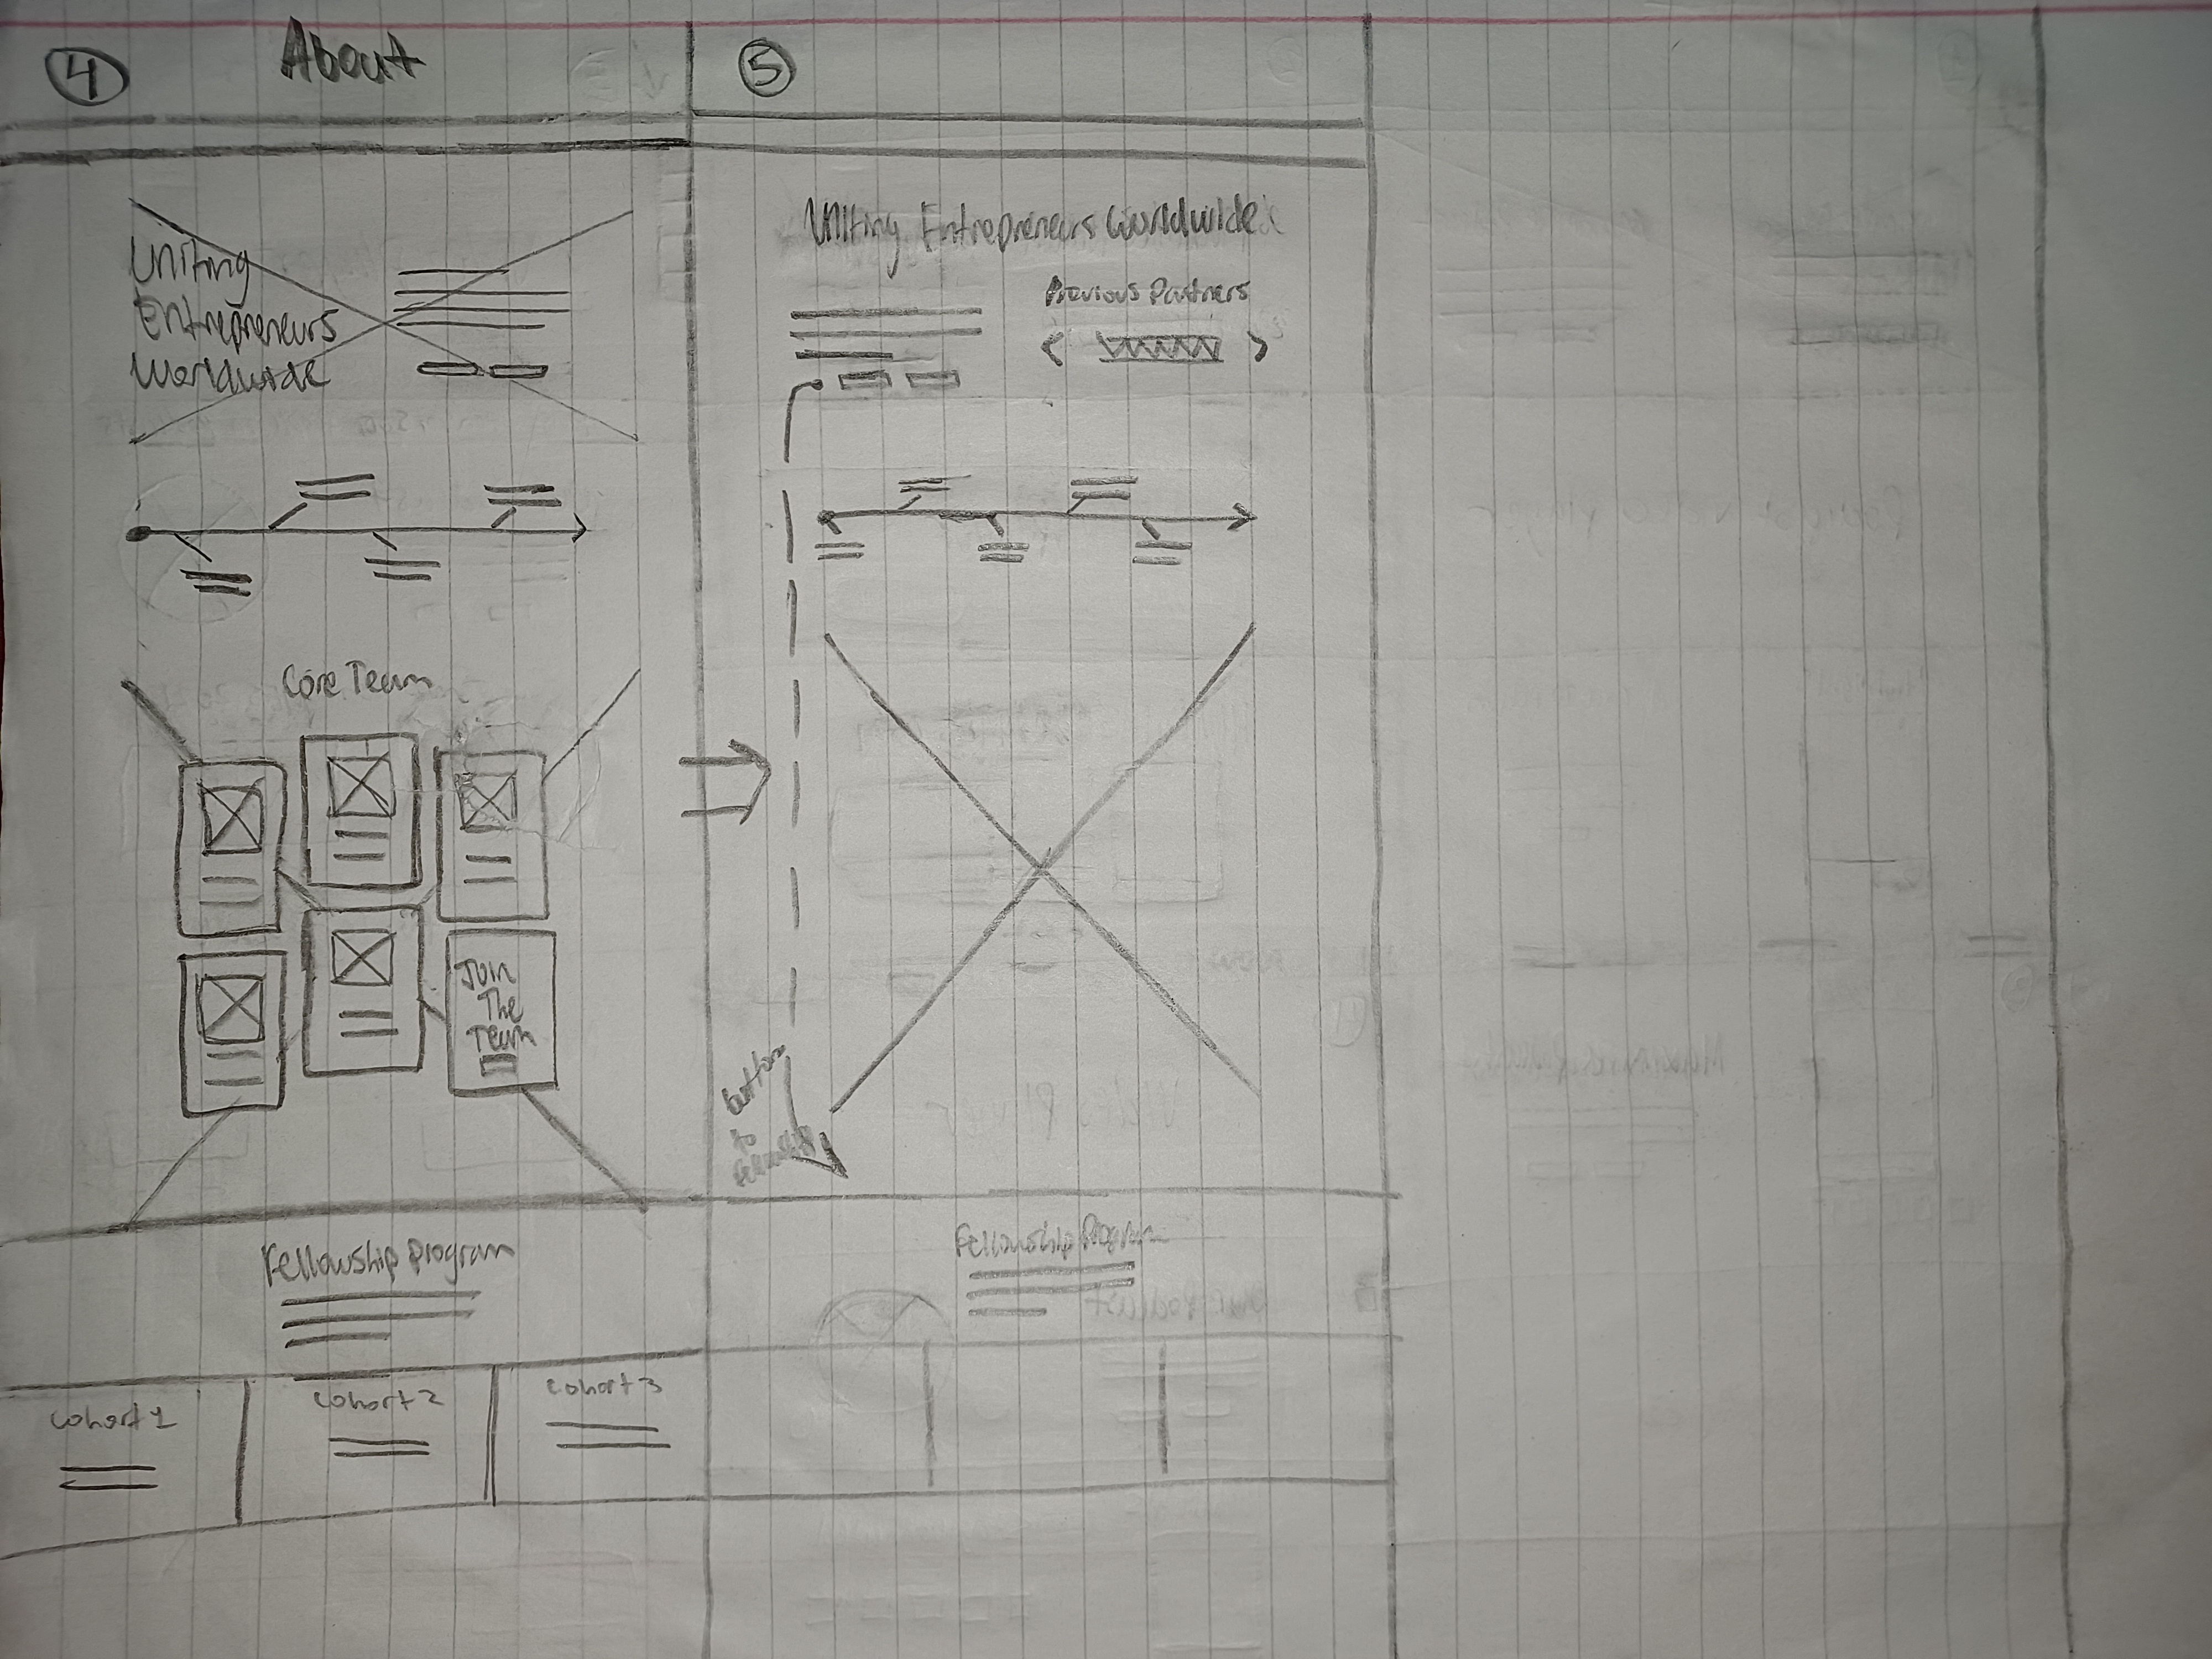 4
About
Uniting
Entrepreneurs
Worldwide
Core Team
Join
The
Team
Fellowship Program
Cohort 1
Cohort 2
Cohort 3
5
Uniting Entrepreneurs Worldwide
Previous Partners
button
to
fellowship
Fellowship Program